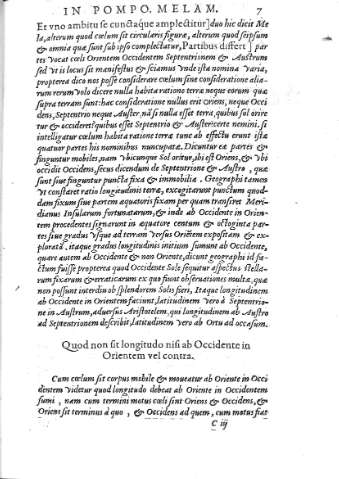 IN POMPO. MELAM. 7
Et vno ambitu se cunctaque amplectitur] duo hic dicit Me
la, alterum quod cœlum sit circularis figuræ, alterum quod seipsum
& omnia quæ sunt sub ipso complectatur, Partibus differt] par
tes vocat cœli Orientem Occidentem Septentrionem & Austrum
sed vt is locus sit manifestus & sciamus vnde ista nomina varia,
propterea dico nos posse considerare cœlum sine consideratione alia-
rum rerum volo dicere nulla habita ratione terræ neque eorum quæ
supra terram sunt: hac consideratione nullus erit Oriens, neque Occi
dens, Septentrio neque Auster. nã si nulla esset terra, quibus sol orire
tur & occideret? quibus esset Septentrio & Auster? certe nemini. si
intelligatur cœlum habita ratione terræ tunc ab effectu erunt istæ
quatuor partes his nominibus nuncupatæ. Dicuntur eæ partes &
finguntur mobiles, nam vbicunque Sol oritur, ibi est Oriens, & vbi
occidit Occidens, secus dicendum de Septentrione & Austro, quæ
sunt siue finguntur puncta fixa & immobilia. Geographi tamen
vt constaret ratio longitudinis terræ, excogitarunt punctum quod-
dam fixum siue partem æquatoris fixam per quam transiret Meri-
dianus Insularum fortunatarum, & inde ab Occidente in Orien-
tem procedentes signarunt in æquatore centum & octoginta par-
tes siue gradus vsque ad terram versus Oriẽtem expositam & ex-
ploratã, itaque gradus longitudinis initium sumunt ab Occidente,
quare autem ab Occidente & non Oriente, dicunt geographi id fa-
ctum fuisse propterea quod Occidente Sole sequatur aspectus stella-
rum fixarum & erraticarum ex quo fiunt obseruationes multæ, quæ
non possunt interdiu ob splendorem Solis fieri, Itaque longitudinem
ab Occidente in Orientem faciunt, latitudinem vero à Septentrio-
ne in Austrum, aduersus Aristotelem, qui longitudinem ab Austro
ad Septentrionem describit, latitudinem vero ab Ortu ad occasum.
Quod non sit longitudo nisi ab Occidente in
Orientem vel contra.
Cum cœlum sit corpus mobile & moueatur ab Oriente in Occi
dentem videtur quod longitudo debeat ab Oriente in Occidentem
sumi, nam cum termini motus cœli sint Oriens & Occidens, &
Oriens sit terminus à quo, & Occidens ad quem, cum motus fiat
C iij